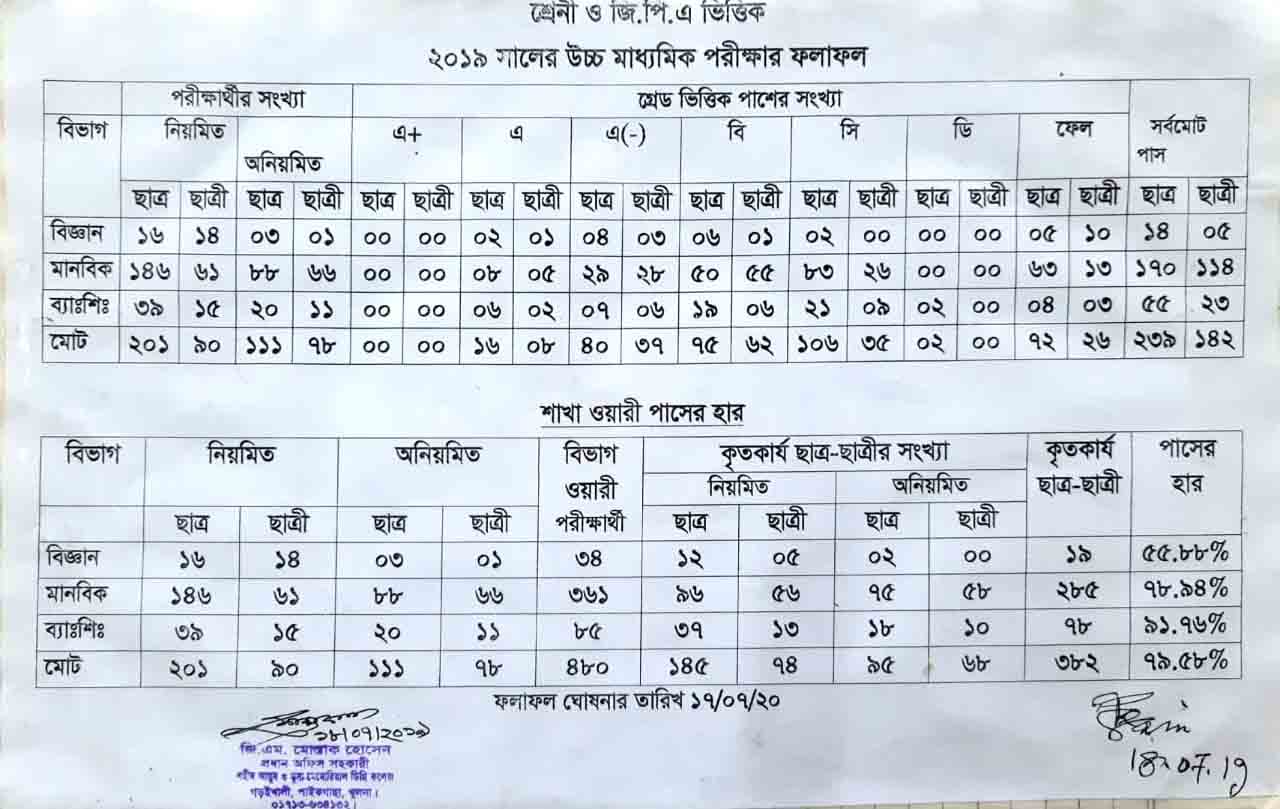 শ্রেনী ও জি.পি.এ ভিত্তিক
২০১৯ সালের উচ্চ মাধ্যমিক পরীক্ষার ফলাফল
বিভাগ পরীক্ষার্থীর সংখ্যা গ্রেড ভিত্তিক পাশের সংখ্যা সর্বমোট পাস
নিয়মিত অনিয়মিত এ+ এ এ(-) বি সি ডি ফেল
ছাত্র ছাত্রী ছাত্র ছাত্রী ছাত্র ছাত্রী ছাত্র ছাত্রী ছাত্র ছাত্রী ছাত্র ছাত্রী ছাত্র ছাত্রী ছাত্র ছাত্রী ছাত্র ছাত্রী ছাত্র ছাত্রী
বিজ্ঞান ১৬ ১৪ ০৩ ০১ ০০ ০০ ০২ ০১ ০৪ ০৩ ০৬ ০১ ০২ ০০ ০০ ০০ ০৫ ১০ ১৪ ০৫
মানবিক ১৪৬ ৬১ ৮৮ ৬৬ ০০ ০০ ০৮ ০৫ ২৯ ২৮ ৫০ ৫৫ ৮৩ ২৬ ০০ ০০ ৬৩ ১৩ ১৭০ ১১৪
ব্যাঃশিঃ ৩৯ ১৫ ২০ ১১ ০০ ০০ ০৬ ০২ ০৭ ০৬ ১৯ ০৬ ২১ ০৯ ০২ ০০ ০৪ ০৩ ৫৫ ২৩
মোট ২০১ ৯০ ১১১ ৭৮ ০০ ০০ ১৬ ০৮ ৪০ ৩৭ ৭৫ ৬২ ১০৬ ৩৫ ০২ ০০ ৭২ ২৬ ২৩৯ ১৪২
শাখা ওয়ারী পাসের হার
বিভাগ নিয়মিত অনিয়মিত বিভাগ ওয়ারী পরীক্ষার্থী কৃতকার্য ছাত্র-ছাত্রীর সংখ্যা কৃতকার্য ছাত্র-ছাত্রী পাসের হার
নিয়মিত অনিয়মিত
ছাত্র ছাত্রী ছাত্র ছাত্রী ছাত্র ছাত্রী ছাত্র ছাত্রী
বিজ্ঞান ১৬ ১৪ ০৩ ০১ ৩৪ ১২ ০৫ ০২ ০০ ১৯ ৫৫.৮৮%
মানবিক ১৪৬ ৬১ ৮৮ ৬৬ ৩৬১ ৯৬ ৫৬ ৭৫ ৫৮ ২৮৫ ৭৮.৯৪%
ব্যাঃশিঃ ৩৯ ১৫ ২০ ১১ ৮৫ ৩৭ ১৩ ১৮ ১০ ৭৮ ৯১.৭৬%
মোট ২০১ ৯০ ১১১ ৭৮ ৪৮০ ১৪৫ ৭৪ ৯৫ ৬৮ ৩৮২ ৭৯.৫৮%
ফলাফল ঘোষনার তারিখ ১৭/০৭/২০
১৮/০৭/২০১৯
জি.এম. মোস্তাক হোসেন
প্রধান অফিস সহকারী
গড়ইখালী, পাইকগাছা, খুলনা।
18.07.19